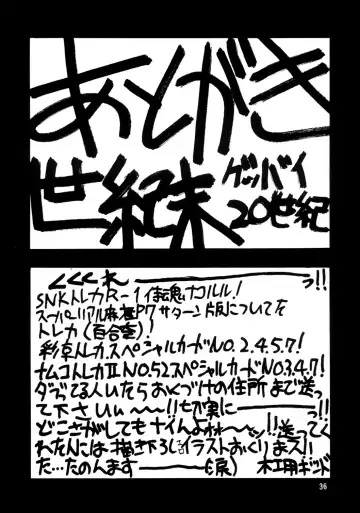 あとがき
世紀末
グッバイ
20世紀
くくくれ――――っ!!
SNKトレカR-1侍魂ナコルル!
スーパーリアル麻雀P7サターン版についてた
トレカ(百合香)!
彩京トレカスペシャルカードNO.2.4.5.7!
ナムコトレカⅡNO.52スペシャルカードNO.3.4.7!
ダブってる人いたらおくづけの住所まで送っ
て下さいぃ〜〜!!切実に――っ!!
どこさがしても ナイんよォォ〜〜ッ!!送ってく
れた人には描き下ろしイラストおくりまス!!
た…たのんます――――(涙)
36